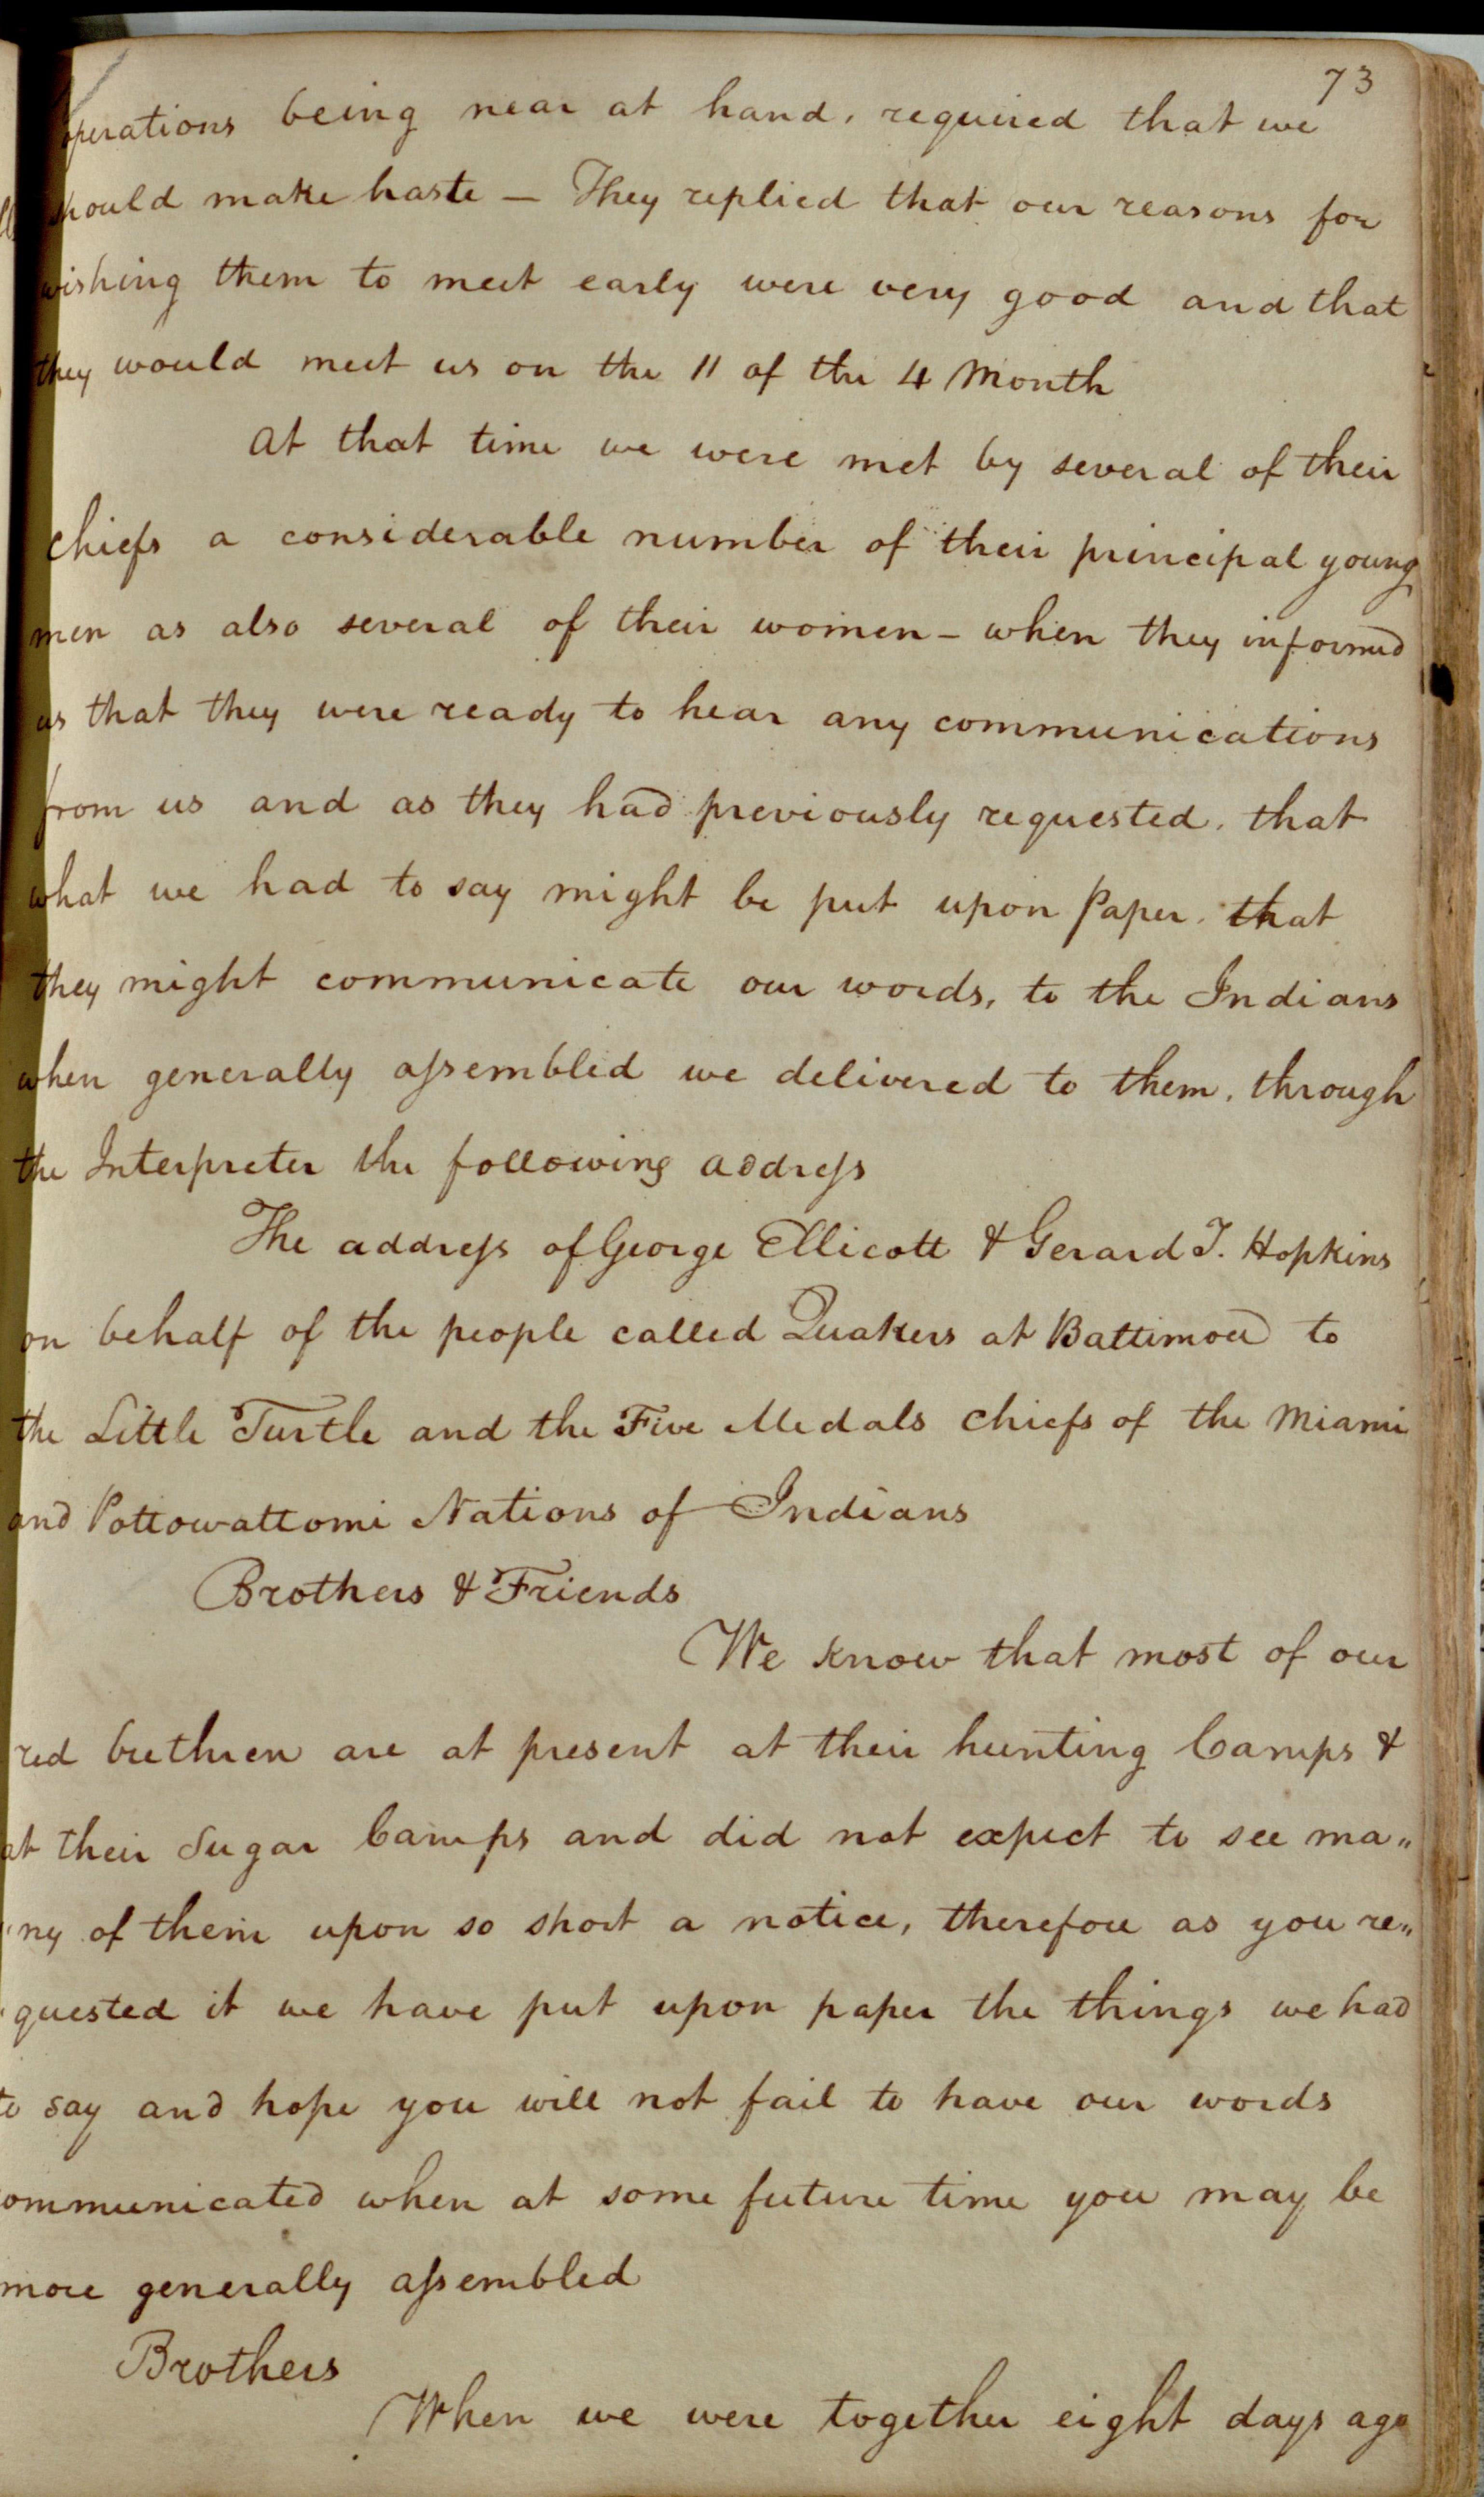 73
operations being near at hand, required that we
should make haste — They replied that our reasons for
wishing them to meet early were very good and that
they would meet us on the 11 of the 4 Month
At that time we were met by several of their
chiefs a considerable number of their principal young
men as also several of their women – when they informed
us that they were ready to hear any communications
from us and as they had previously requested, that
what we had to say might be put upon Paper, that
they might communicate our words, to the Indians
when generally aſsembled we delivered to them, through
the Interpreter the following addreſs
The addreſs of George Ellicott & Gerard T. Hopkins
on behalf of the people called Quakers at Baltimore to
the Little Turtle and the Five Medals chiefs of the Miami
and Pottowattomi Nations of Indians
Brothers & Friends
We know that most of our
red brethren are at present at their hunting Camps &
at their Sugar Camps and did not expect to see ma„
„ny of them upon so short a notice, therefore as you re„
„quested it we have put upon paper the things we had
to say and hope you will not fail to have our words
communicated when at some future time you may be
more generally aſsembled
Brothers
When we were together eight days ago